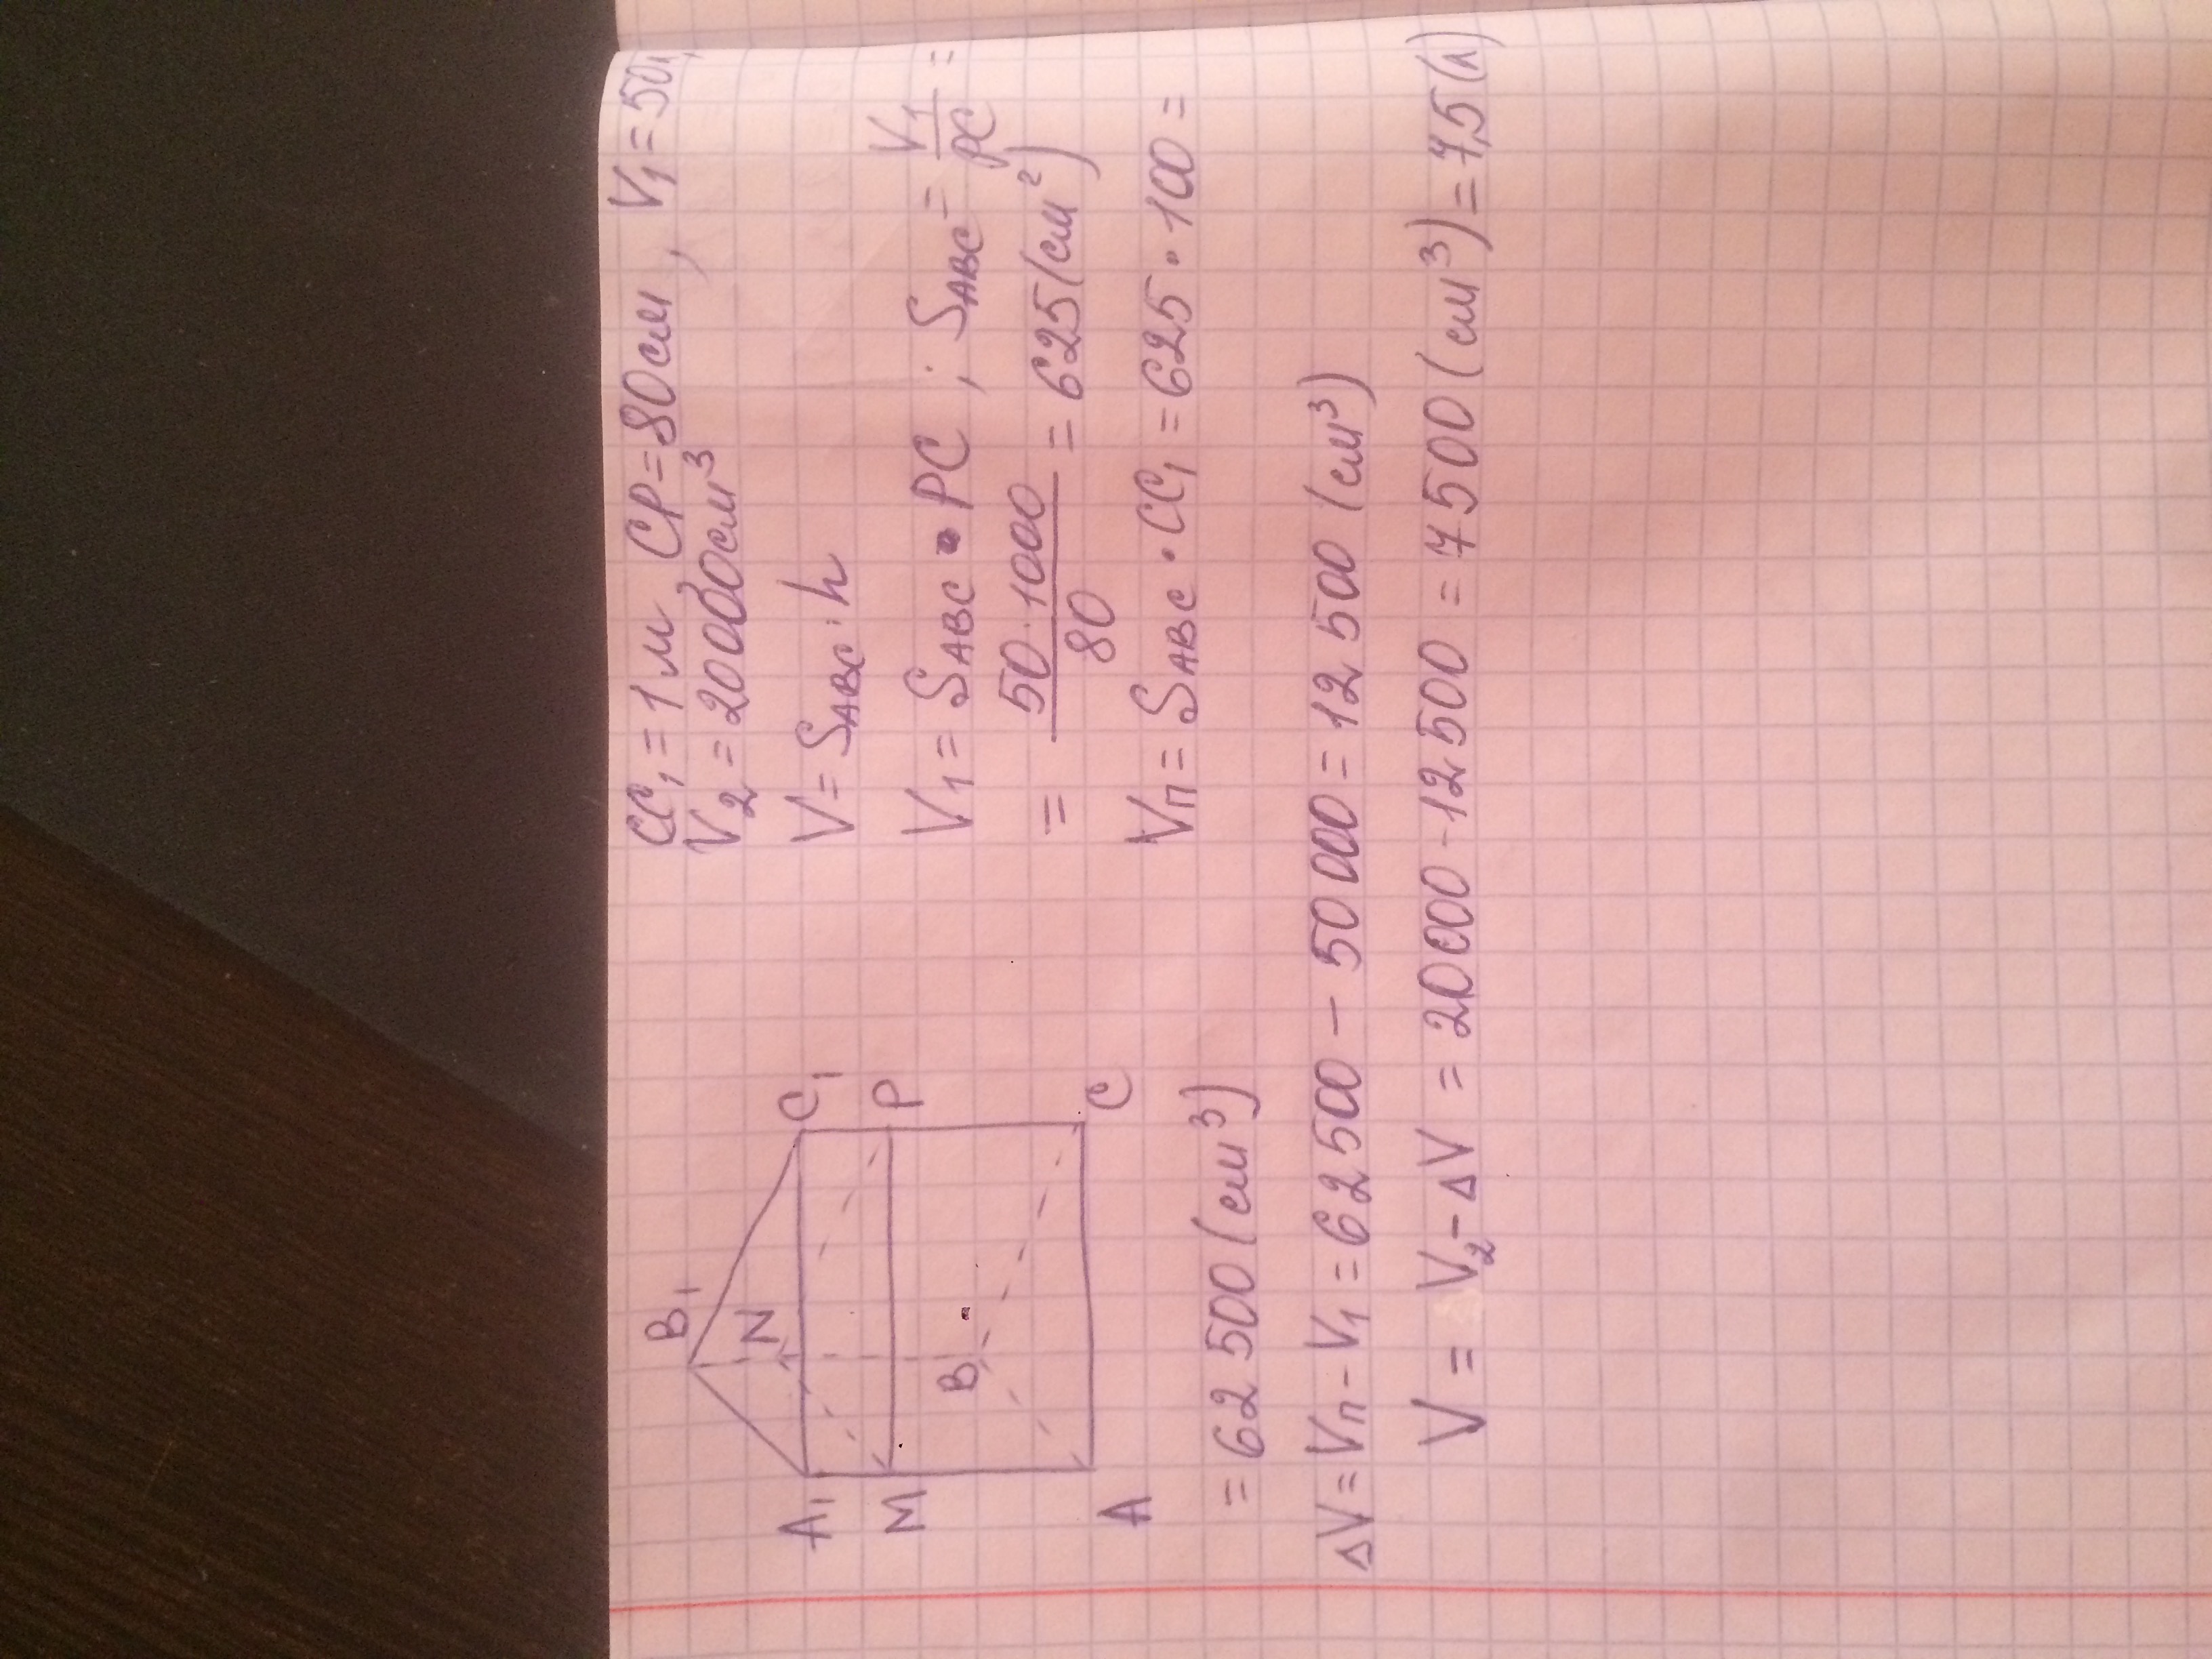 CC₁ = 1 м CP = 80 см , V₁ = 50 л,
V₂ = 20000 см³
V = S_ABC · h
V₁ = S_ABC · PC ; S_ABC = V₁/PC =
= (50 · 1000)/80 = 625 (см²)
Vп = S_ABC · CC₁ = 625 · 100 =
B₁
N
A₁ C₁
M P
B
A C
= 62 500 (см³)
ΔV = Vп - V₁ = 62 500 - 50 000 = 12 500 (см³)
V = V₂ - ΔV = 20000 - 12 500 = 7 500 (см³) = 7,5 (л)